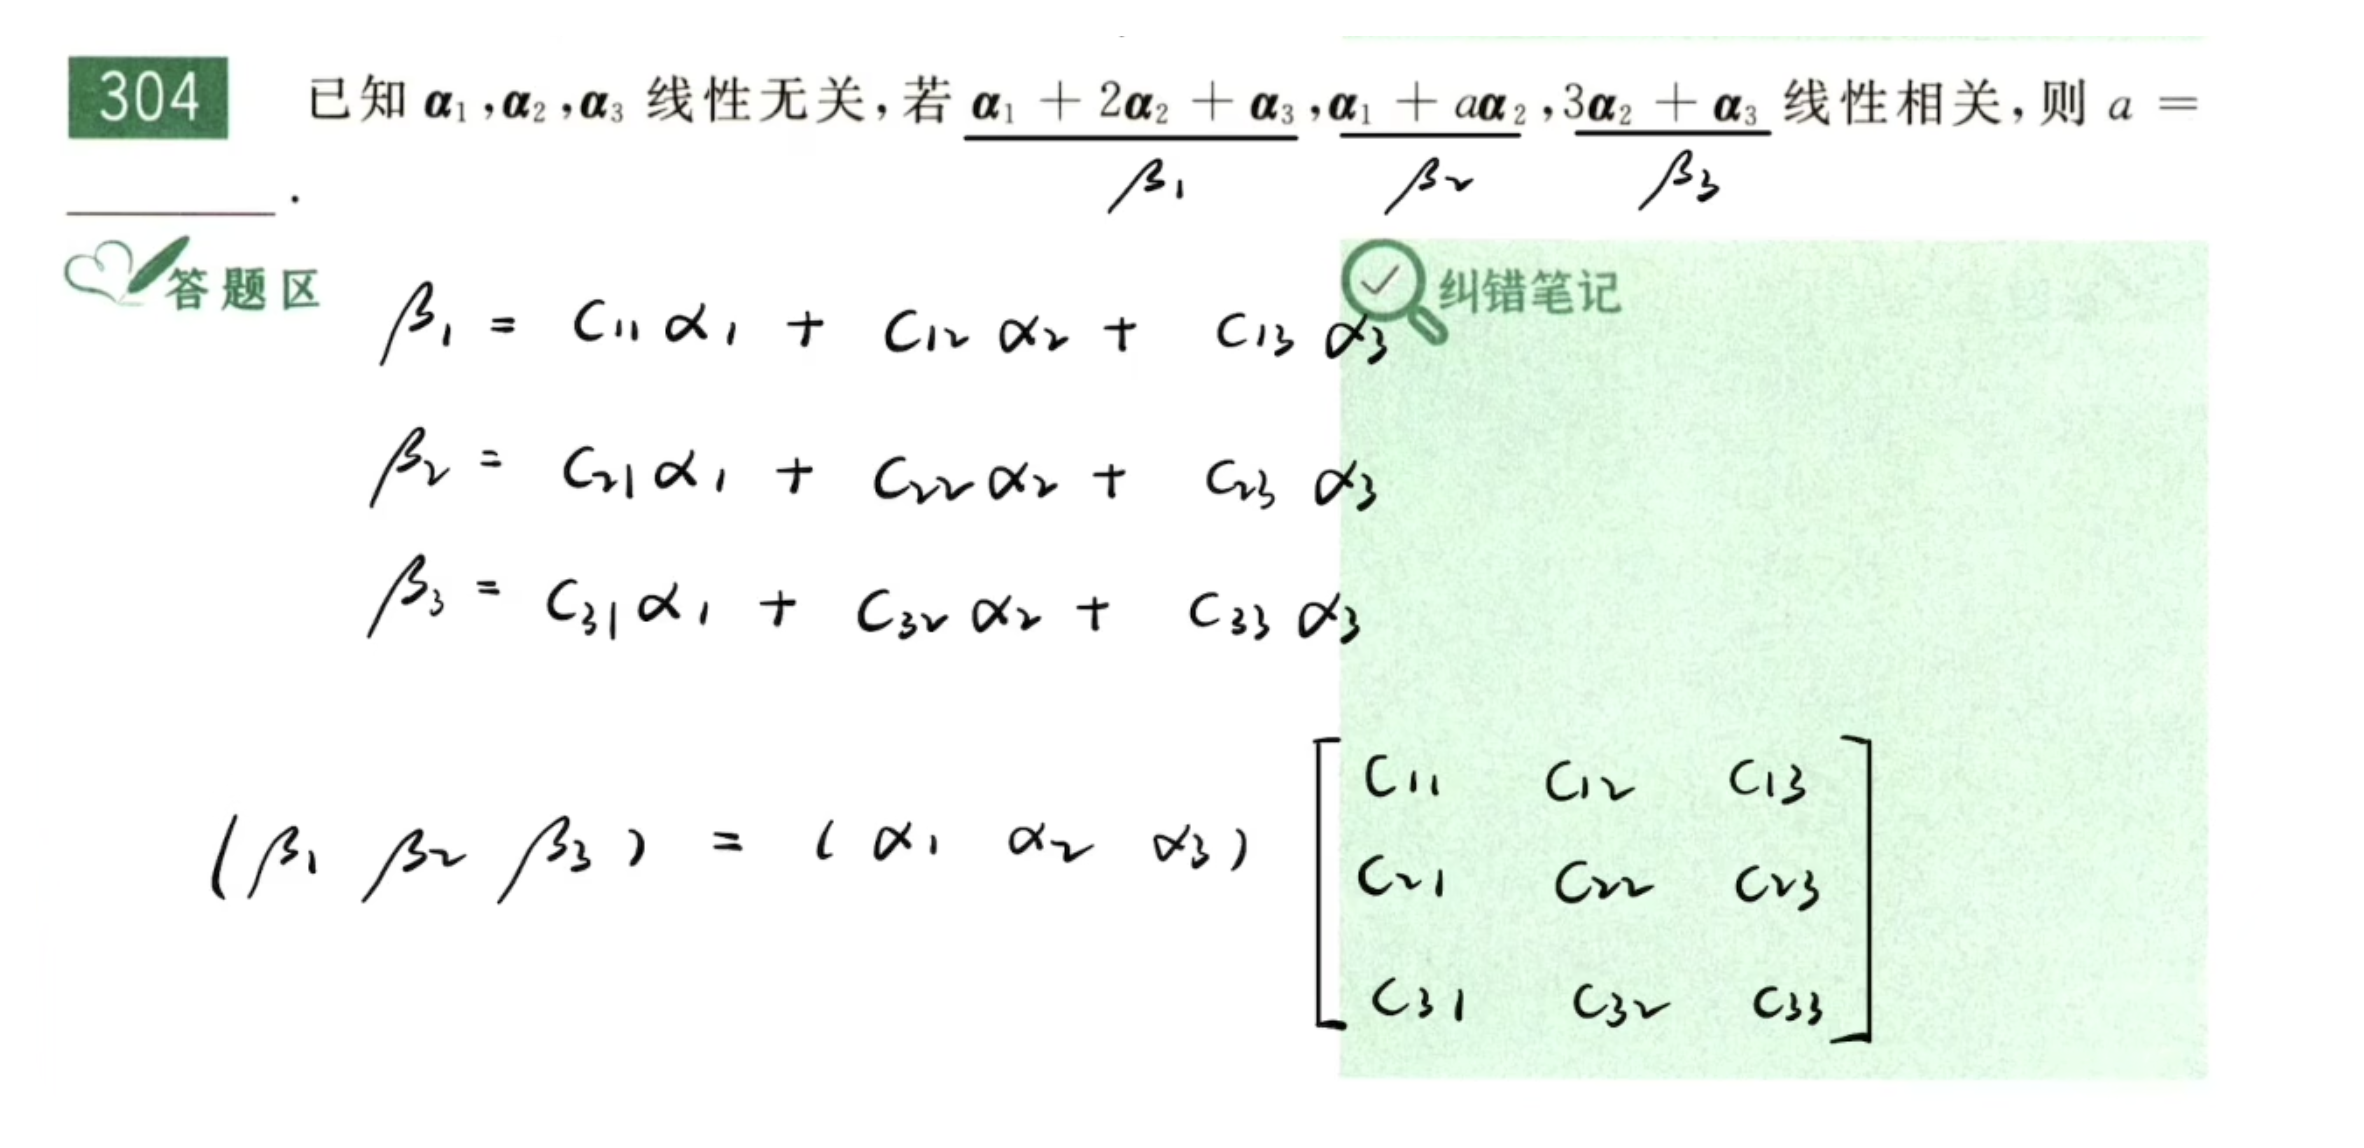 304 已知 α₁,α₂,α₃ 线性无关,若 α₁ + 2α₂ + α₃,α₁ + aα₂,3α₂ + α₃ 线性相关,则 a =
______.
β₁ β₂ β₃
答题区 纠错笔记
β₁ = C₁₁α₁ + C₁₂α₂ + C₁₃α₃
β₂ = C₂₁α₁ + C₂₂α₂ + C₂₃α₃
β₃ = C₃₁α₁ + C₃₂α₂ + C₃₃α₃
(β₁ β₂ β₃) = (α₁ α₂ α₃) [C₁₁ C₁₂ C₁₃
C₂₁ C₂₂ C₂₃
C₃₁ C₃₂ C₃₃]